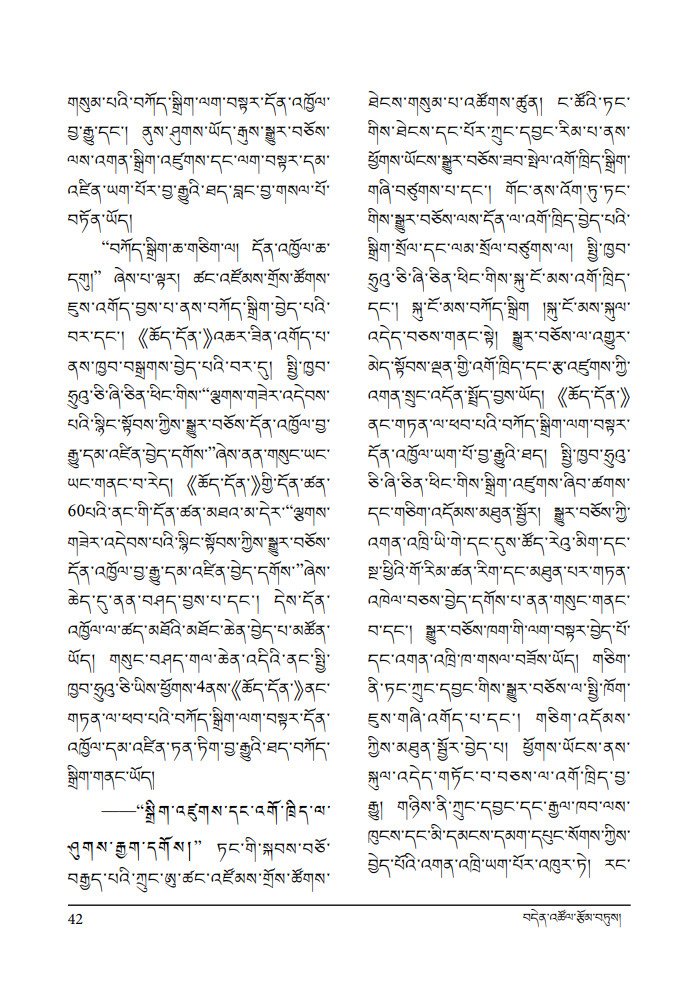 གསུམ་པའི་བཀོད་སྒྲིག་ལག་བསྟར་དོན་འཁྱོལ་
བྱ་རྒྱུ་དང་། ནུས་ཤུགས་ཡོད་རྒུས་སྒྱུར་བཅོས་
ལས་འགན་སྒྲིག་འཛུགས་དང་ལག་བསྟར་དམ་
འཛིན་ཡག་པོར་བྱ་རྒྱུའི་ཐད་བླང་བྱ་གསལ་པོ་
བཏོན་ཡོད།
“བཀོད་སྒྲིག་ཆ་གཅིག་ལ། དོན་འཁྱོལ་ཆ་
དགུ།” ཞེས་པ་ལྟར། ཚང་འཛོམས་གྲོས་ཚོགས་
ཇུས་འགོད་བྱས་པ་ནས་བཀོད་སྒྲིག་བྱེད་པའི་
བར་དང་། 《ཆོད་དོན་》འཆར་ཟིན་འགོད་པ་
ནས་ཁྱབ་བསྒྲགས་བྱེད་པའི་བར་དུ། སྤྱི་ཁྱབ་
ཧྲུའུ་ཅི་ཞི་ཅིན་ཕིང་གིས་“ལྕགས་གཟེར་འདེབས་
པའི་སྙིང་སྟོབས་ཀྱིས་སྒྱུར་བཅོས་དོན་འཁྱོལ་བྱ་
རྒྱུ་དམ་འཛིན་བྱེད་དགོས་”ཞེས་ནན་གསུང་ཡང་
ཡང་གནང་བ་རེད། 《ཆོད་དོན་》གྱི་དོན་ཚན་
60པའི་ནང་གི་དོན་ཚན་མཐའ་མ་དེར་“ལྕགས་
གཟེར་འདེབས་པའི་སྙིང་སྟོབས་ཀྱིས་སྒྱུར་བཅོས་
དོན་འཁྱོལ་བྱ་རྒྱུ་དམ་འཛིན་བྱེད་དགོས་”ཞེས་
ཆེད་དུ་ནན་བཤད་བྱས་པ་དང་། དེས་དོན་
འཁྱོལ་ལ་ཚད་མཐོའི་མཐོང་ཆེན་བྱེད་པ་མཚོན་
ཡོད། གསུང་བཤད་གལ་ཆེན་འདིའི་ནང་སྤྱི་
ཁྱབ་ཧྲུའུ་ཅི་ཡིས་ཕྱོགས་4ནས་《ཆོད་དོན་》ནང་
གཏན་ལ་ཕབ་པའི་བཀོད་སྒྲིག་ལག་བསྟར་དོན་
འཁྱོལ་དམ་འཛིན་ཏན་ཏིག་བྱ་རྒྱུའི་ཐད་བཀོད་
སྒྲིག་གནང་ཡོད།
——“སྒྲིག་འཛུགས་དང་འགོ་ཁྲིད་ལ་
ཤུགས་རྒྱག་དགོས།” ཏང་གི་སྐབས་བཅོ་
བརྒྱད་པའི་ཀྲུང་ཨུ་ཚང་འཛོམས་གྲོས་ཚོགས་
ཐེངས་གསུམ་པ་འཚོགས་ཚུན། ང་ཚོའི་ཏང་
གིས་ཐེངས་དང་པོར་ཀྲུང་དབྱང་རིམ་པ་ནས་
ཕྱོགས་ཡོངས་སྒྱུར་བཅོས་ཟབ་སྤེལ་འགོ་ཁྲིད་སྒྲིག་
གཞི་བཙུགས་པ་དང་། གོང་ནས་འོག་ཏུ་ཏང་
གིས་སྒྱུར་བཅོས་ལས་དོན་ལ་འགོ་ཁྲིད་བྱེད་པའི་
སྒྲིག་སྲོལ་དང་ལམ་སྲོལ་བཙུགས་ལ། སྤྱི་ཁྱབ་
ཧྲུའུ་ཅི་ཞི་ཅིན་ཕིང་གིས་སྐུ་ངོ་མས་འགོ་ཁྲིད་
དང་། སྐུ་ངོ་མས་བཀོད་སྒྲིག །སྐུ་ངོ་མས་སྐུལ་
འདེད་བཅས་གནང་སྟེ། སྒྱུར་བཅོས་ལ་འགྱུར་
མེད་སྟོབས་ལྡན་གྱི་འགོ་ཁྲིད་དང་རྩ་འཛུགས་ཀྱི་
འགན་སྲུང་འདོན་སྤྲོད་བྱས་ཡོད། 《ཆོད་དོན་》
ནང་གཏན་ལ་ཕབ་པའི་བཀོད་སྒྲིག་ལག་བསྟར་
དོན་འཁྱོལ་ཡག་པོ་བྱ་རྒྱུའི་ཐད། སྤྱི་ཁྱབ་ཧྲུའུ་
ཅི་ཞི་ཅིན་ཕིང་གིས་སྒྲིག་འཛུགས་ཞིབ་ཚགས་
དང་གཅིག་འདོམས་མཐུན་སྦྱོར། སྒྱུར་བཅོས་ཀྱི་
འགན་འཁྲི་ཡི་གེ་དང་དུས་ཚོད་རེའུ་མིག་དང་
སྔ་ཕྱིའི་གོ་རིམ་ཚན་རིག་དང་མཐུན་པར་གཏན་
འཁེལ་བཅས་བྱེད་དགོས་པ་ནན་གསུང་གནང་
བ་དང་། སྒྱུར་བཅོས་ཁག་གི་ལག་བསྟར་བྱེད་པོ་
དང་འགན་འཁྲི་ཁ་གསལ་བཟོས་ཡོད། གཅིག་
ནི་ཏང་ཀྲུང་དབྱང་གིས་སྒྱུར་བཅོས་ལ་སྤྱི་ཁོག་
ཇུས་གཞི་འགོད་པ་དང་། གཅིག་འདོམས་
ཀྱིས་མཐུན་སྦྱོར་བྱེད་པ། ཕྱོགས་ཡོངས་ནས་
སྐུལ་འདེད་གཏོང་བ་བཅས་ལ་འགོ་ཁྲིད་བྱ་
རྒྱུ། གཉིས་ནི་ཀྲུང་དབྱང་དང་རྒྱལ་ཁབ་ལས་
ཁུངས་དང་མི་དམངས་དམག་དཔུང་སོགས་ཀྱིས་
བྱེད་པོའི་འགན་འཁྲི་ཡག་པོར་འཁུར་ཏེ། རང་
42
བདེན་འཚོལ་རྩོམ་བཏུས།